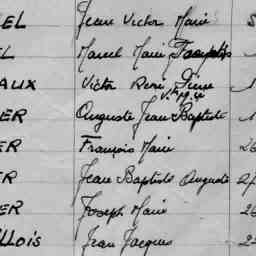 EL Jean Victor Marie S
EL Marcel Marie Joseph
AUX Victor René Pierre 1
V.M.4
ER Auguste Jean Baptiste 1
ER François Marie 26
ER Jean Baptiste Auguste 2
ER Joseph Marie 26
LLOIS Jean Jacques 22